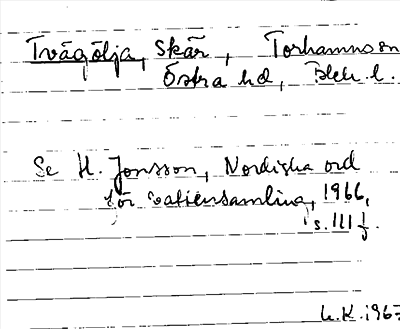 Tvägölja, skär, Torhamns sn
Östra hd, Blek l.
Se H. Jonsson, Nordiska ord
för vattensamling, 1966,
s. 111 f.
L.K. 1967